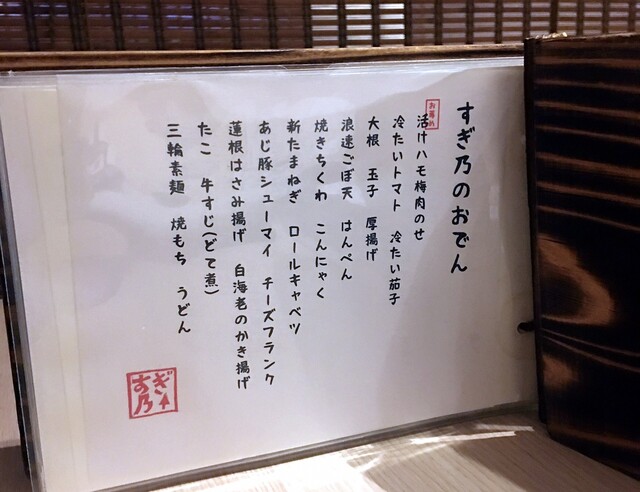 すぎ乃のおでん
お薦め
活けハモ梅肉のせ
冷たいトマト 冷たい茄子
大根 玉子 厚揚げ
浪速ごぼ天 はんぺん
焼きちくわ こんにゃく
新たまねぎ ロールキャベツ
あじ豚シューマイ チーズフランク
蓮根はさみ揚げ 白海老のかき揚げ
たこ 牛すじ(どて煮)
三輪素麺 焼もち うどん
すぎ乃